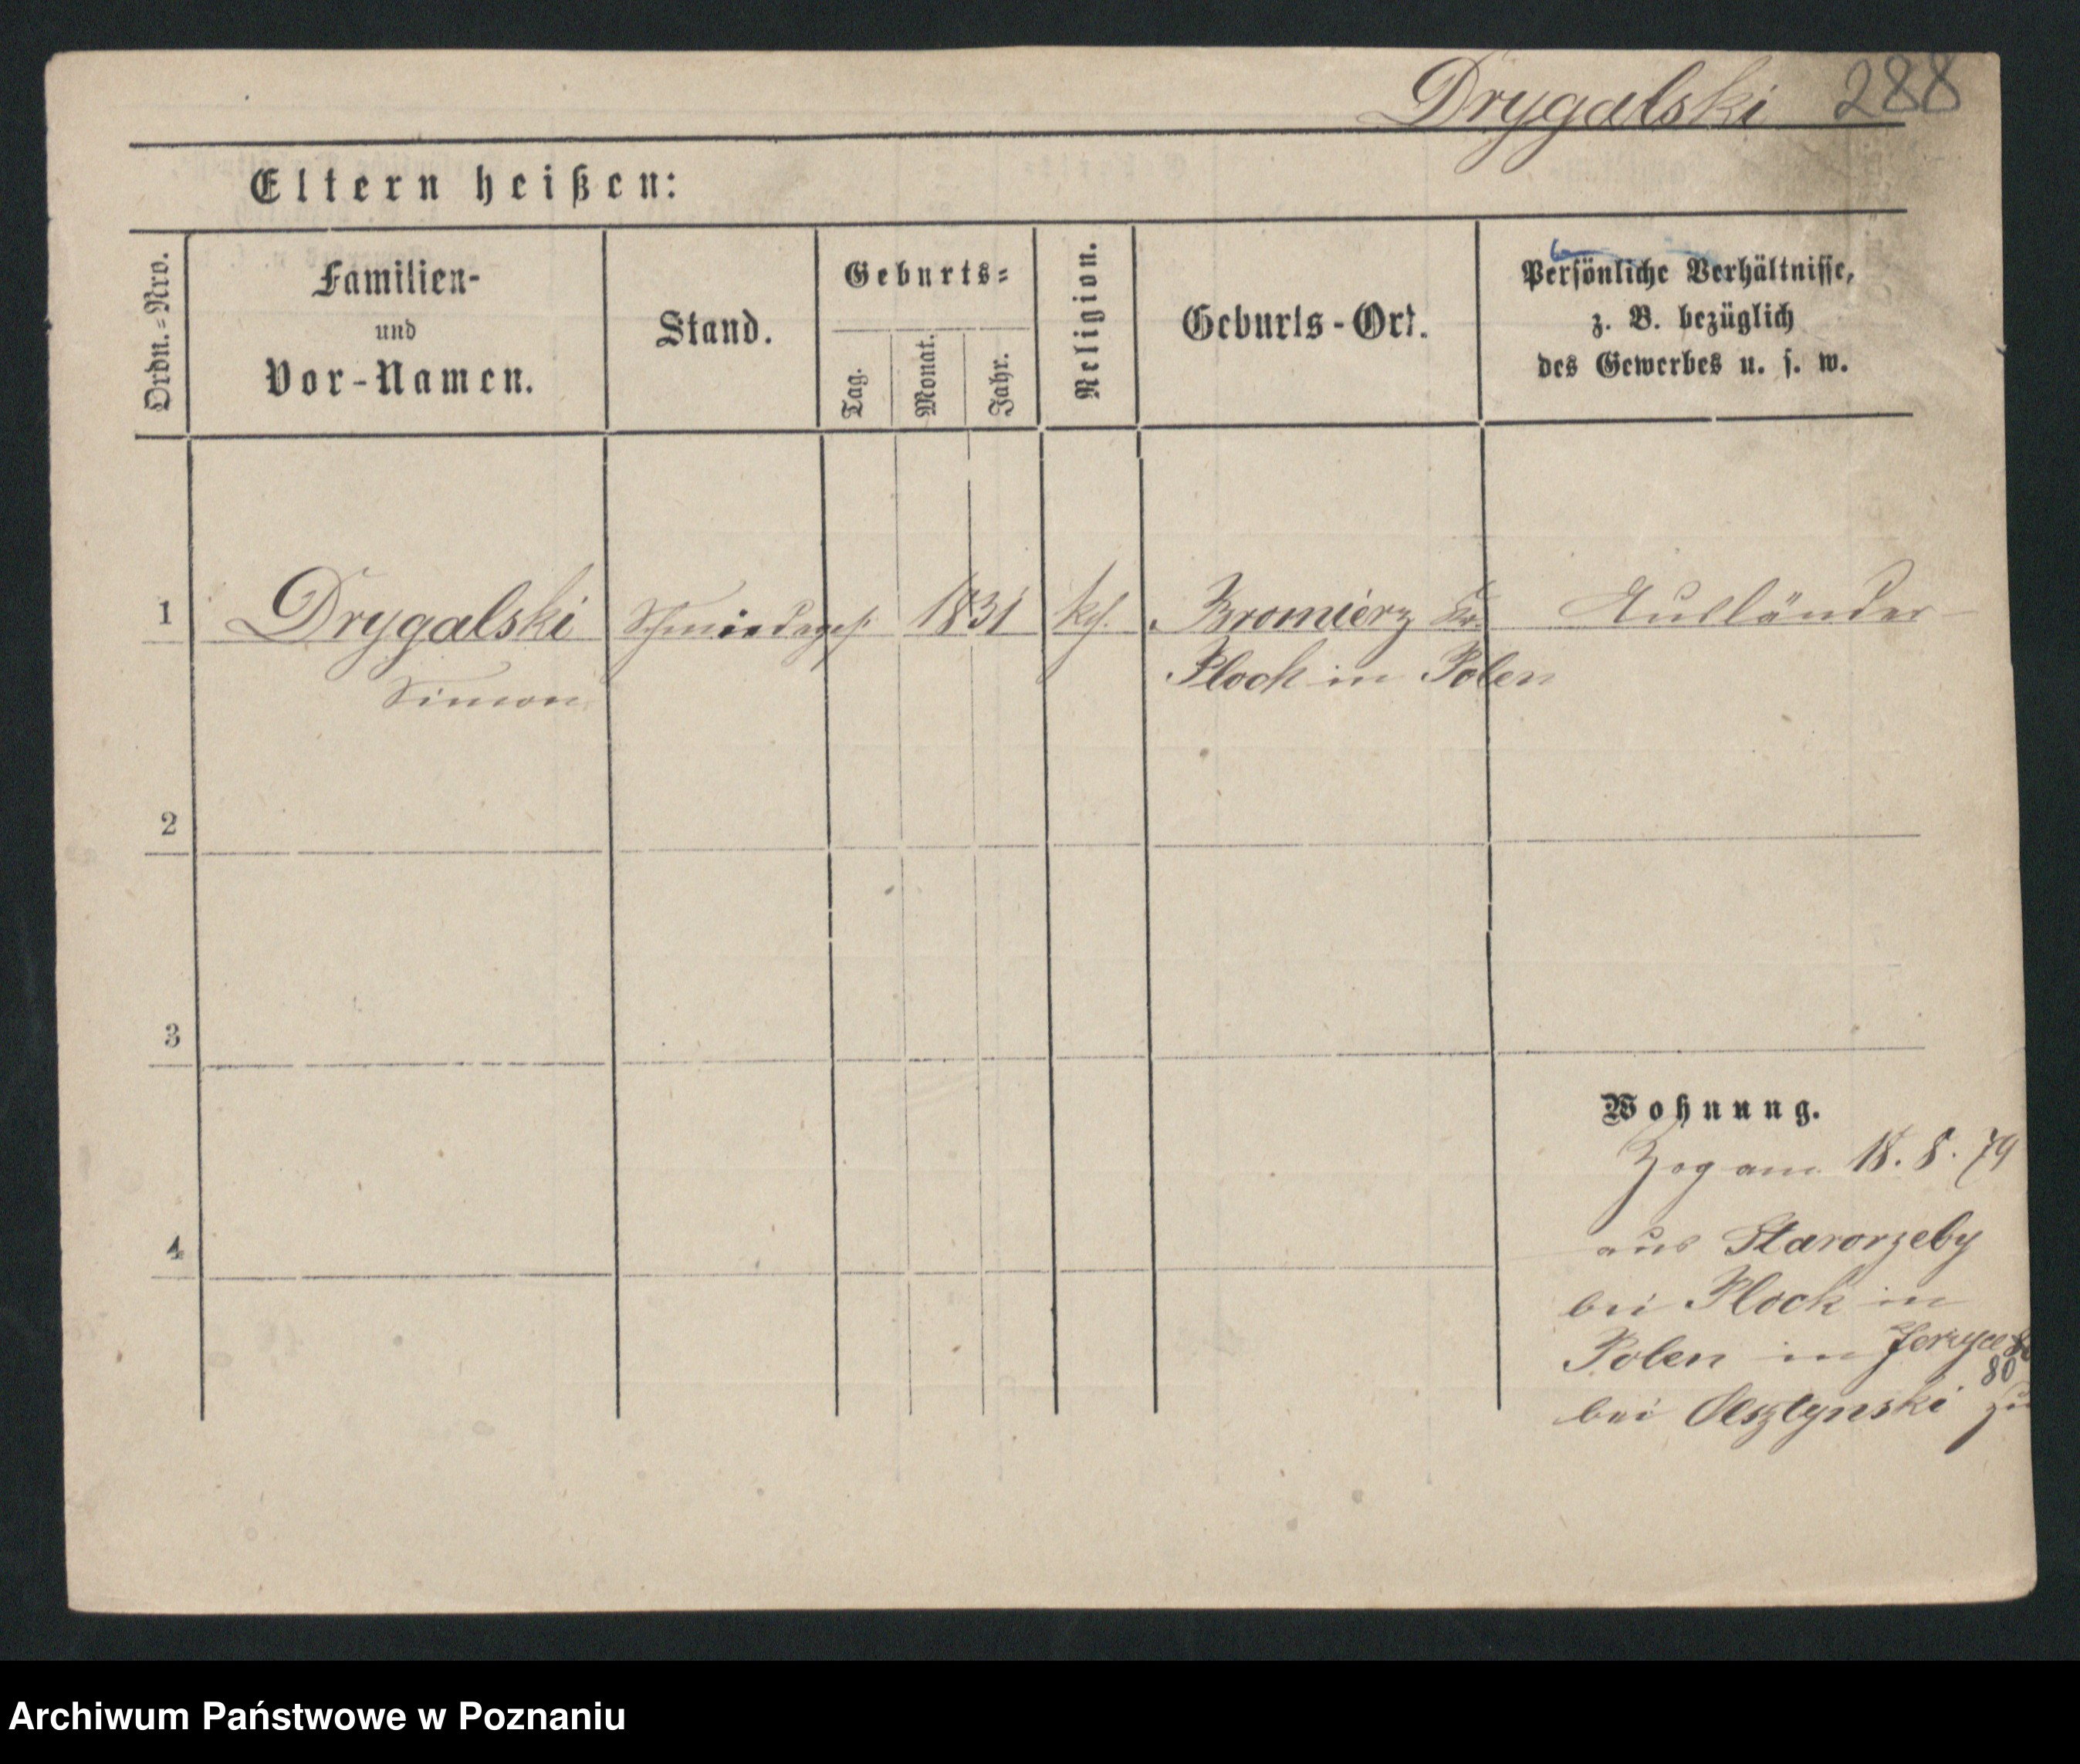 Drygalski 288
Eltern heißen:
Ordn.=Nro.
Familien-
und
Vor-Namen.
Stand.
Geburts=
Tag.
Monat.
Jahr.
Religion.
Geburts-Ort.
Persönliche Verhältnisse,
z. B. bezüglich
des Gewerbes u. s. w.
1 Drygalski Schmiedeges. 1831 kth. Bromierz Kr. Ausländer
Simon Plock in Polen
2
3
4
Wohnung.
Zog am 18. 8. 79
aus Starorzeby
bei Plock in
Polen in
80
bei Olsztynski zu
Archiwum Państwowe w Poznaniu